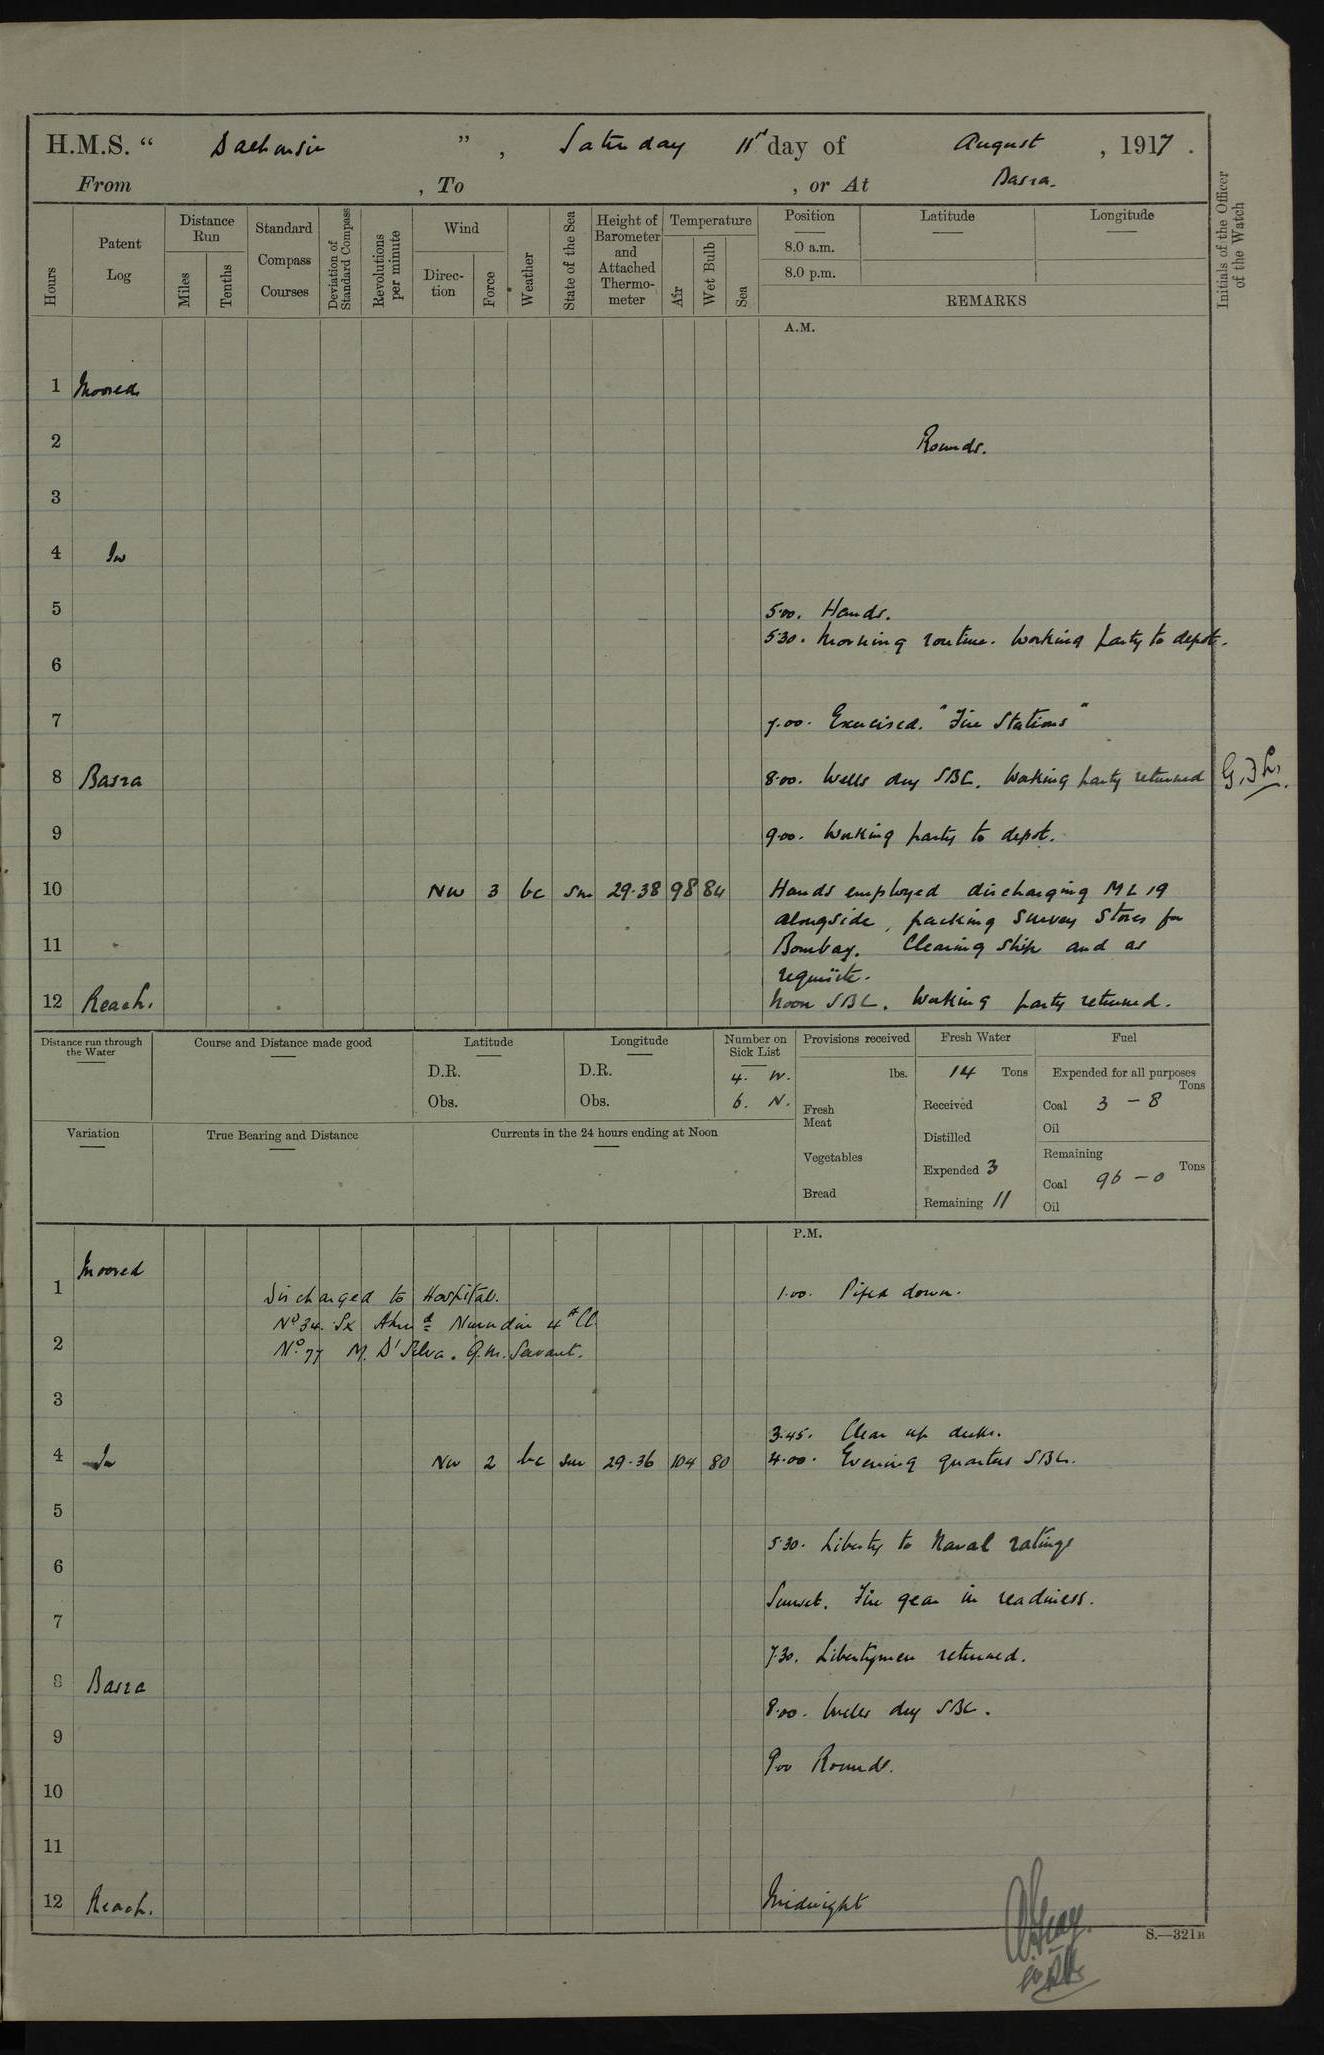 H.M.S. " Dalhousie ", Saturday 11th day of August, 1917.
From , To , or At Basra.
Hours
Patent Log
Distance Run
Miles
Tenths
Standard Compass Courses
Deviation of Standard Compass
Revolutions per minute
Wind
Direction
Force
Weather
State of the Sea
Height of Barometer and Attached Thermometer
Temperature
Air
Wet Bulb
Sea
Position
8.0 a.m.
8.0 p.m.
Latitude
Longitude
REMARKS
Initials of the Officer of the Watch
A.M.
1 Moored
2 Rounds.
3
4 In
5 5.00. Hands.
5.30. Morning routine. Working party to depot.
6
7 7.00. Exercised "Fire Stations"
8 Basra 8.00. Wells dry SBC. Working party returned
9 9.00. Working party to depot.
10 NW 3 bc sm 29.38 98 84 Hands employed discharging ML 19
alongside, packing Survey Stores for
11 Bombay. Cleaning Ship and as
requisite.
12 Reach. Noon SBC. Working party returned.
Distance run through the Water
Course and Distance made good
Latitude
D.R.
Obs.
Longitude
D.R.
Obs.
Number on Sick List
4. W.
6. N.
Provisions received
lbs.
Fresh Meat
Vegetables
Bread
Fresh Water
14 Tons
Received
Distilled
Expended 3
Remaining 11
Fuel
Expended for all purposes
Tons
Coal 3 - 8
Oil
Remaining
Tons
Coal 96 - 0
Oil
Variation
True Bearing and Distance
Currents in the 24 hours ending at Noon
P.M.
Moored
1 Discharged to Hospital. 1.00. Piped down.
No 34. Sx Ahmd Nurudin 4th Cl.
2 No. 77 M. D'Silva. G.M. Servant.
3
3.45. Clear up decks.
4 In NW 2 bc sm 29.36 104 80 4.00. Evening quarters SBC.
5
5.30. Liberty to Naval ratings
6
Sunset. Fire gear in readiness.
7
7.30. Libertymen returned.
8 Basra
8.00. Wells dry SBC.
9
9.00 Rounds.
10
11
12 Reach. Midnight
S.—321B